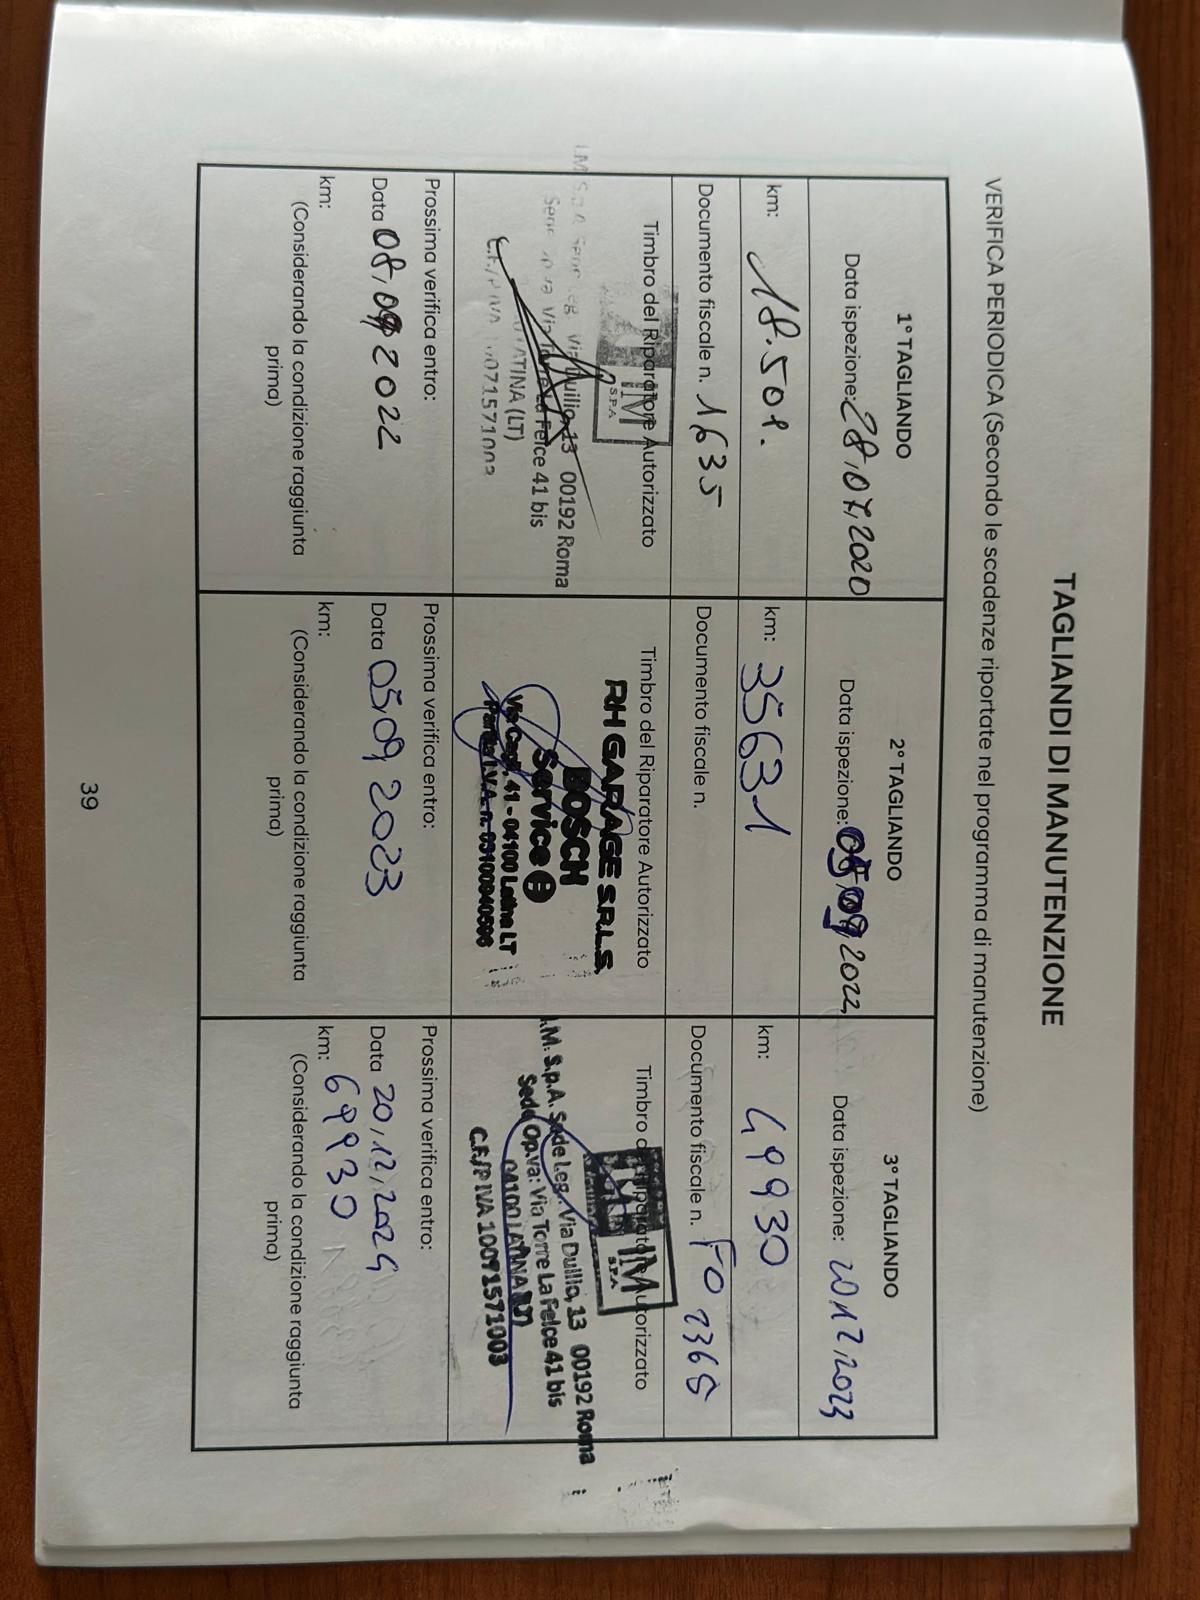 TAGLIANDI DI MANUTENZIONE
VERIFICA PERIODICA (Secondo le scadenze riportate nel programma di manutenzione)
1° TAGLIANDO
Data ispezione: 28.07.2020
km: 18.501.
Documento fiscale n. 1635
Timbro del Riparatore Autorizzato
IM
S.P.A
Via Duilio, 13 00192 Roma
Felce 41 bis
LATINA (LT)
Prossima verifica entro:
Data 08.09 2022
km:
(Considerando la condizione raggiunta
prima)
2° TAGLIANDO
Data ispezione: 05.09.2022
km: 35631
Documento fiscale n.
Timbro del Riparatore Autorizzato
RH GARAGE S.R.L.S.
BOSCH
Service
41 - 04100 Latina LT
Partita I.V.A. n.
Prossima verifica entro:
Data 05.09.2023
km:
(Considerando la condizione raggiunta
prima)
3° TAGLIANDO
Data ispezione: 20.12.2023
km: 49930
Documento fiscale n. FO 2365
Timbro del Riparatore Autorizzato
IM
S.P.A
I.M. S.p.A. Sede Leg. Via Duilio, 13 00192 Roma
Sede Op.va: Via Torre La Felce 41 bis
04100 LATINA (LT)
C.F./P IVA 10071571003
Prossima verifica entro:
Data 20.12.2024
km: 69930
(Considerando la condizione raggiunta
prima)
39